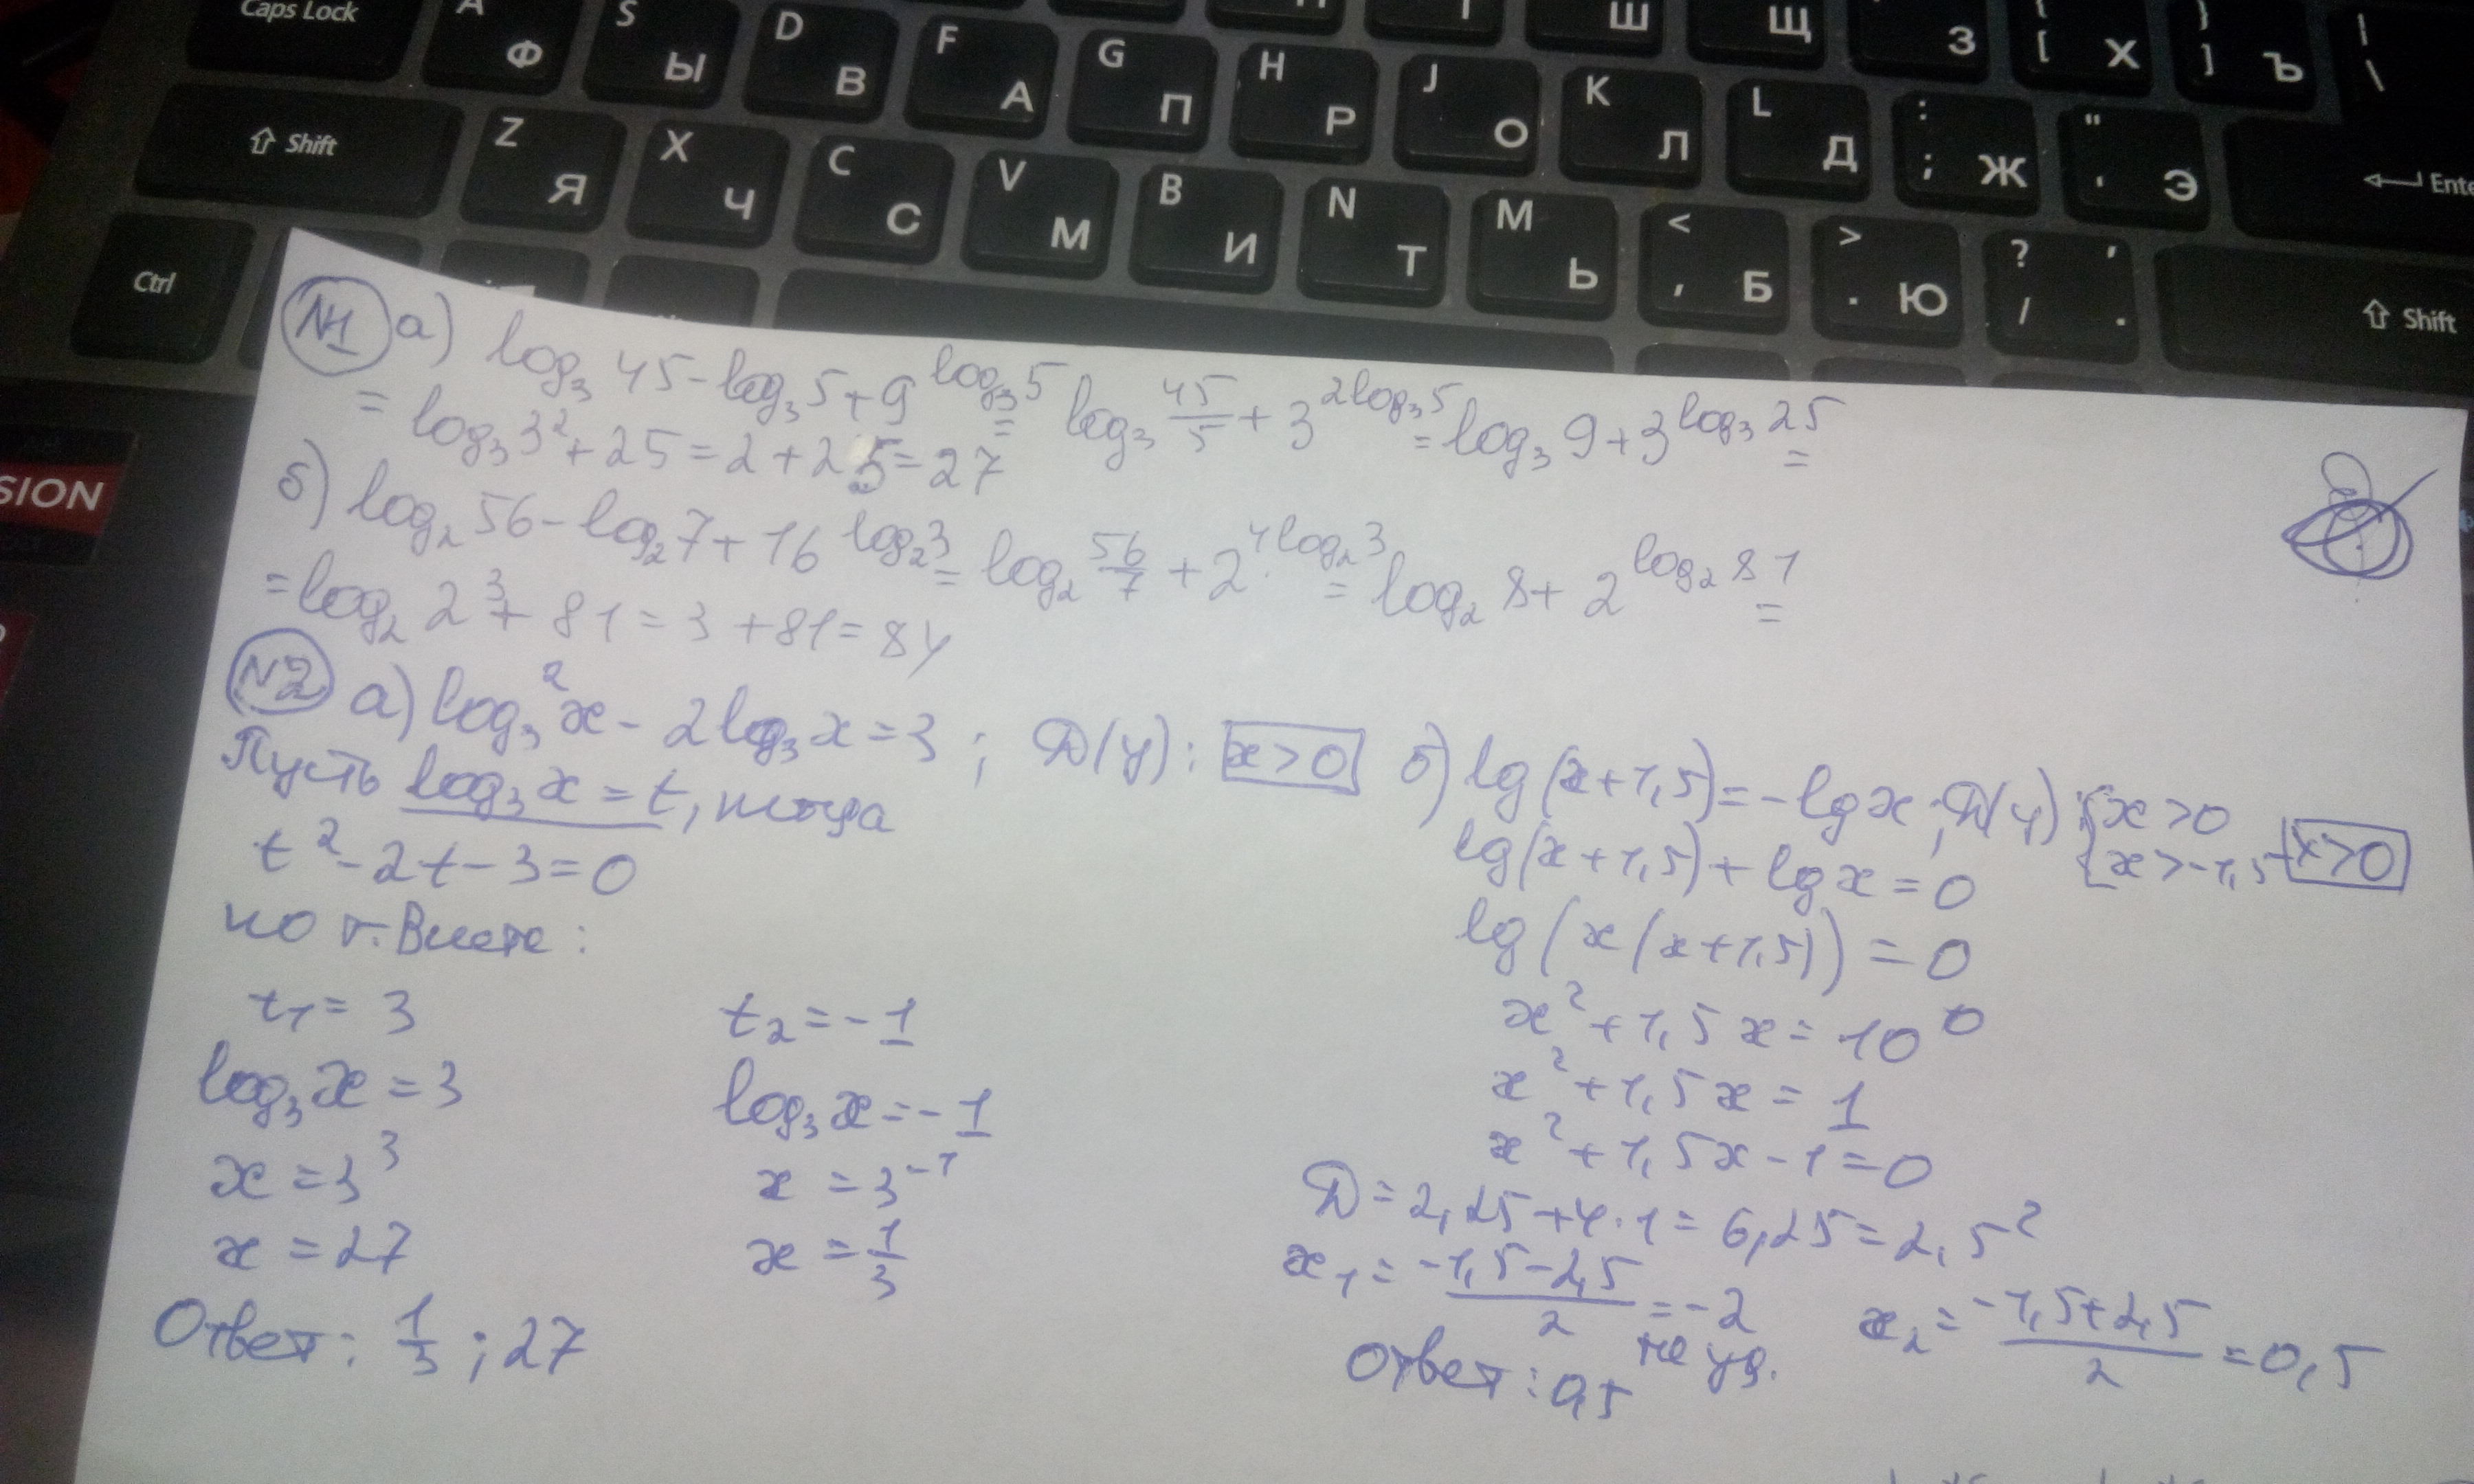 Caps Lock A Ф S Ы D В F А G П H Р J О K Л L Д : ; Ж " ' Э Enter
Ш Щ З { [ Х } ] Ъ | \
⇧ Shift Z Я X Ч C С V М B И N Т M Ь < , Б > . Ю ? / , . ⇧ Shift
Ctrl
SION
№1 а) log₃ 45 - log₃ 5 + 9^(log₃ 5) = log₃ 45/5 + 3^(2log₃ 5) = log₃ 9 + 3^(log₃ 25) =
= log₃ 3² + 25 = 2 + 25 = 27
б) log₂ 56 - log₂ 7 + 16^(log₂ 3) = log₂ 56/7 + 2^(4log₂ 3) = log₂ 8 + 2^(log₂ 81) =
= log₂ 2³ + 81 = 3 + 81 = 84
№2 а) log₃² x - 2log₃ x = 3 ; D(y): x > 0
Пусть log₃ x = t, тогда
t² - 2t - 3 = 0
по т. Виета:
t₁ = 3 t₂ = -1
log₃ x = 3 log₃ x = -1
x = 3³ x = 3⁻¹
x = 27 x = 1/3
Ответ: 1/3 ; 27
б) lg(x+1,5) = -lg x ; D(y): { x > 0
{ x > -1,5 x > 0
lg(x+1,5) + lg x = 0
lg(x(x+1,5)) = 0
x² + 1,5x = 10⁰
x² + 1,5x = 1
x² + 1,5x - 1 = 0
D = 2,25 + 4·1 = 6,25 = 2,5²
x₁ = (-1,5-2,5)/2 = -2 x₂ = (-1,5+2,5)/2 = 0,5
не уд.
Ответ: 0,5